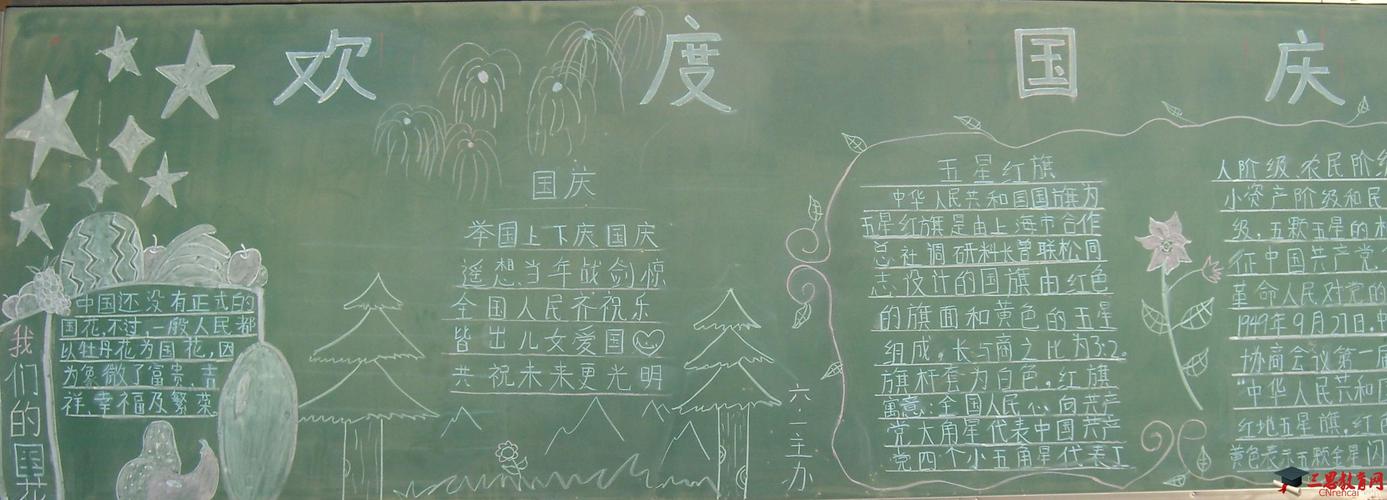 欢度国庆
我们的国花
中国还没有正式的
国花,不过,一般人民都
以牡丹花为国花,因
为象徵了富贵、吉
祥、幸福及繁荣
国庆
举国上下庆国庆
遥想当年战剑惊
全国人民齐祝乐
皆出儿女爱国
共祝未来更光明
六·一主办
五星红旗
中华人民共和国国旗为
五星红旗是由上海市合作
总社调研科长曾联松同
志设计的国旗由红色
的旗面和黄色的五星
组成,长与高之比为3:2。
旗杆套为白色,红旗
寓意:全国人民心向共产
党大角星代表中国共产
党四个小五角星代表工
人阶级、农民阶级
小资产阶级和民
级,五颗五星的相
征中国共产党
革命人民对党的
1949年9月27日,中
协商会议第一届
"中华人民共和国
红地五星旗,红色
黄色表示五颗金星闪
三思教育网
CNrencai